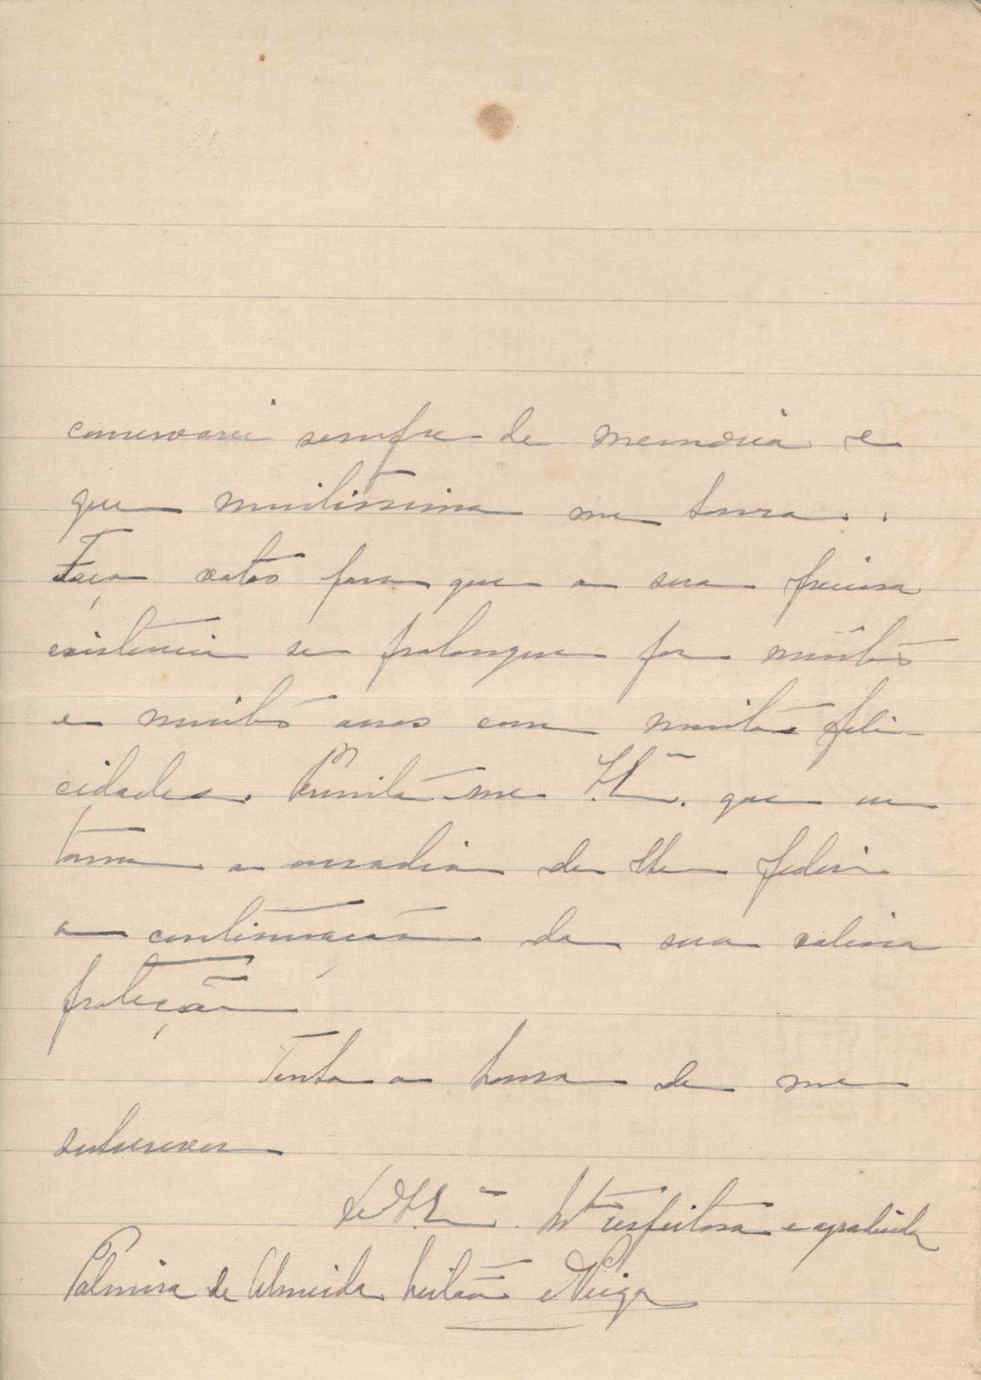 conservarei sempre de memoria e
que muitissimo me honra..
Faço votos para que a sua preciosa
existencia se prolongue por muitos
e muitos anos com muitas feli-
cidades. Permita-me V. Ex.ª que eu
tome a ousadia de lhe pedir
a continuação da sua valiosa
proteção
Tenho a honra de me
subscrever
De V. Ex.ª M.to respeitosa e agradecida
Palmira de Almeida Leitão Veiga